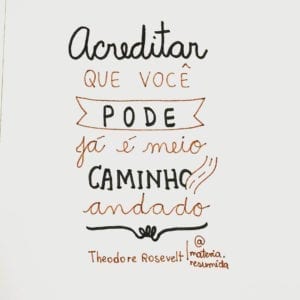 Acreditar
QUE VOCÊ
PODE
já é meio
CAMINHO
andado
Theodore Rosevelt
@materia.
resumida